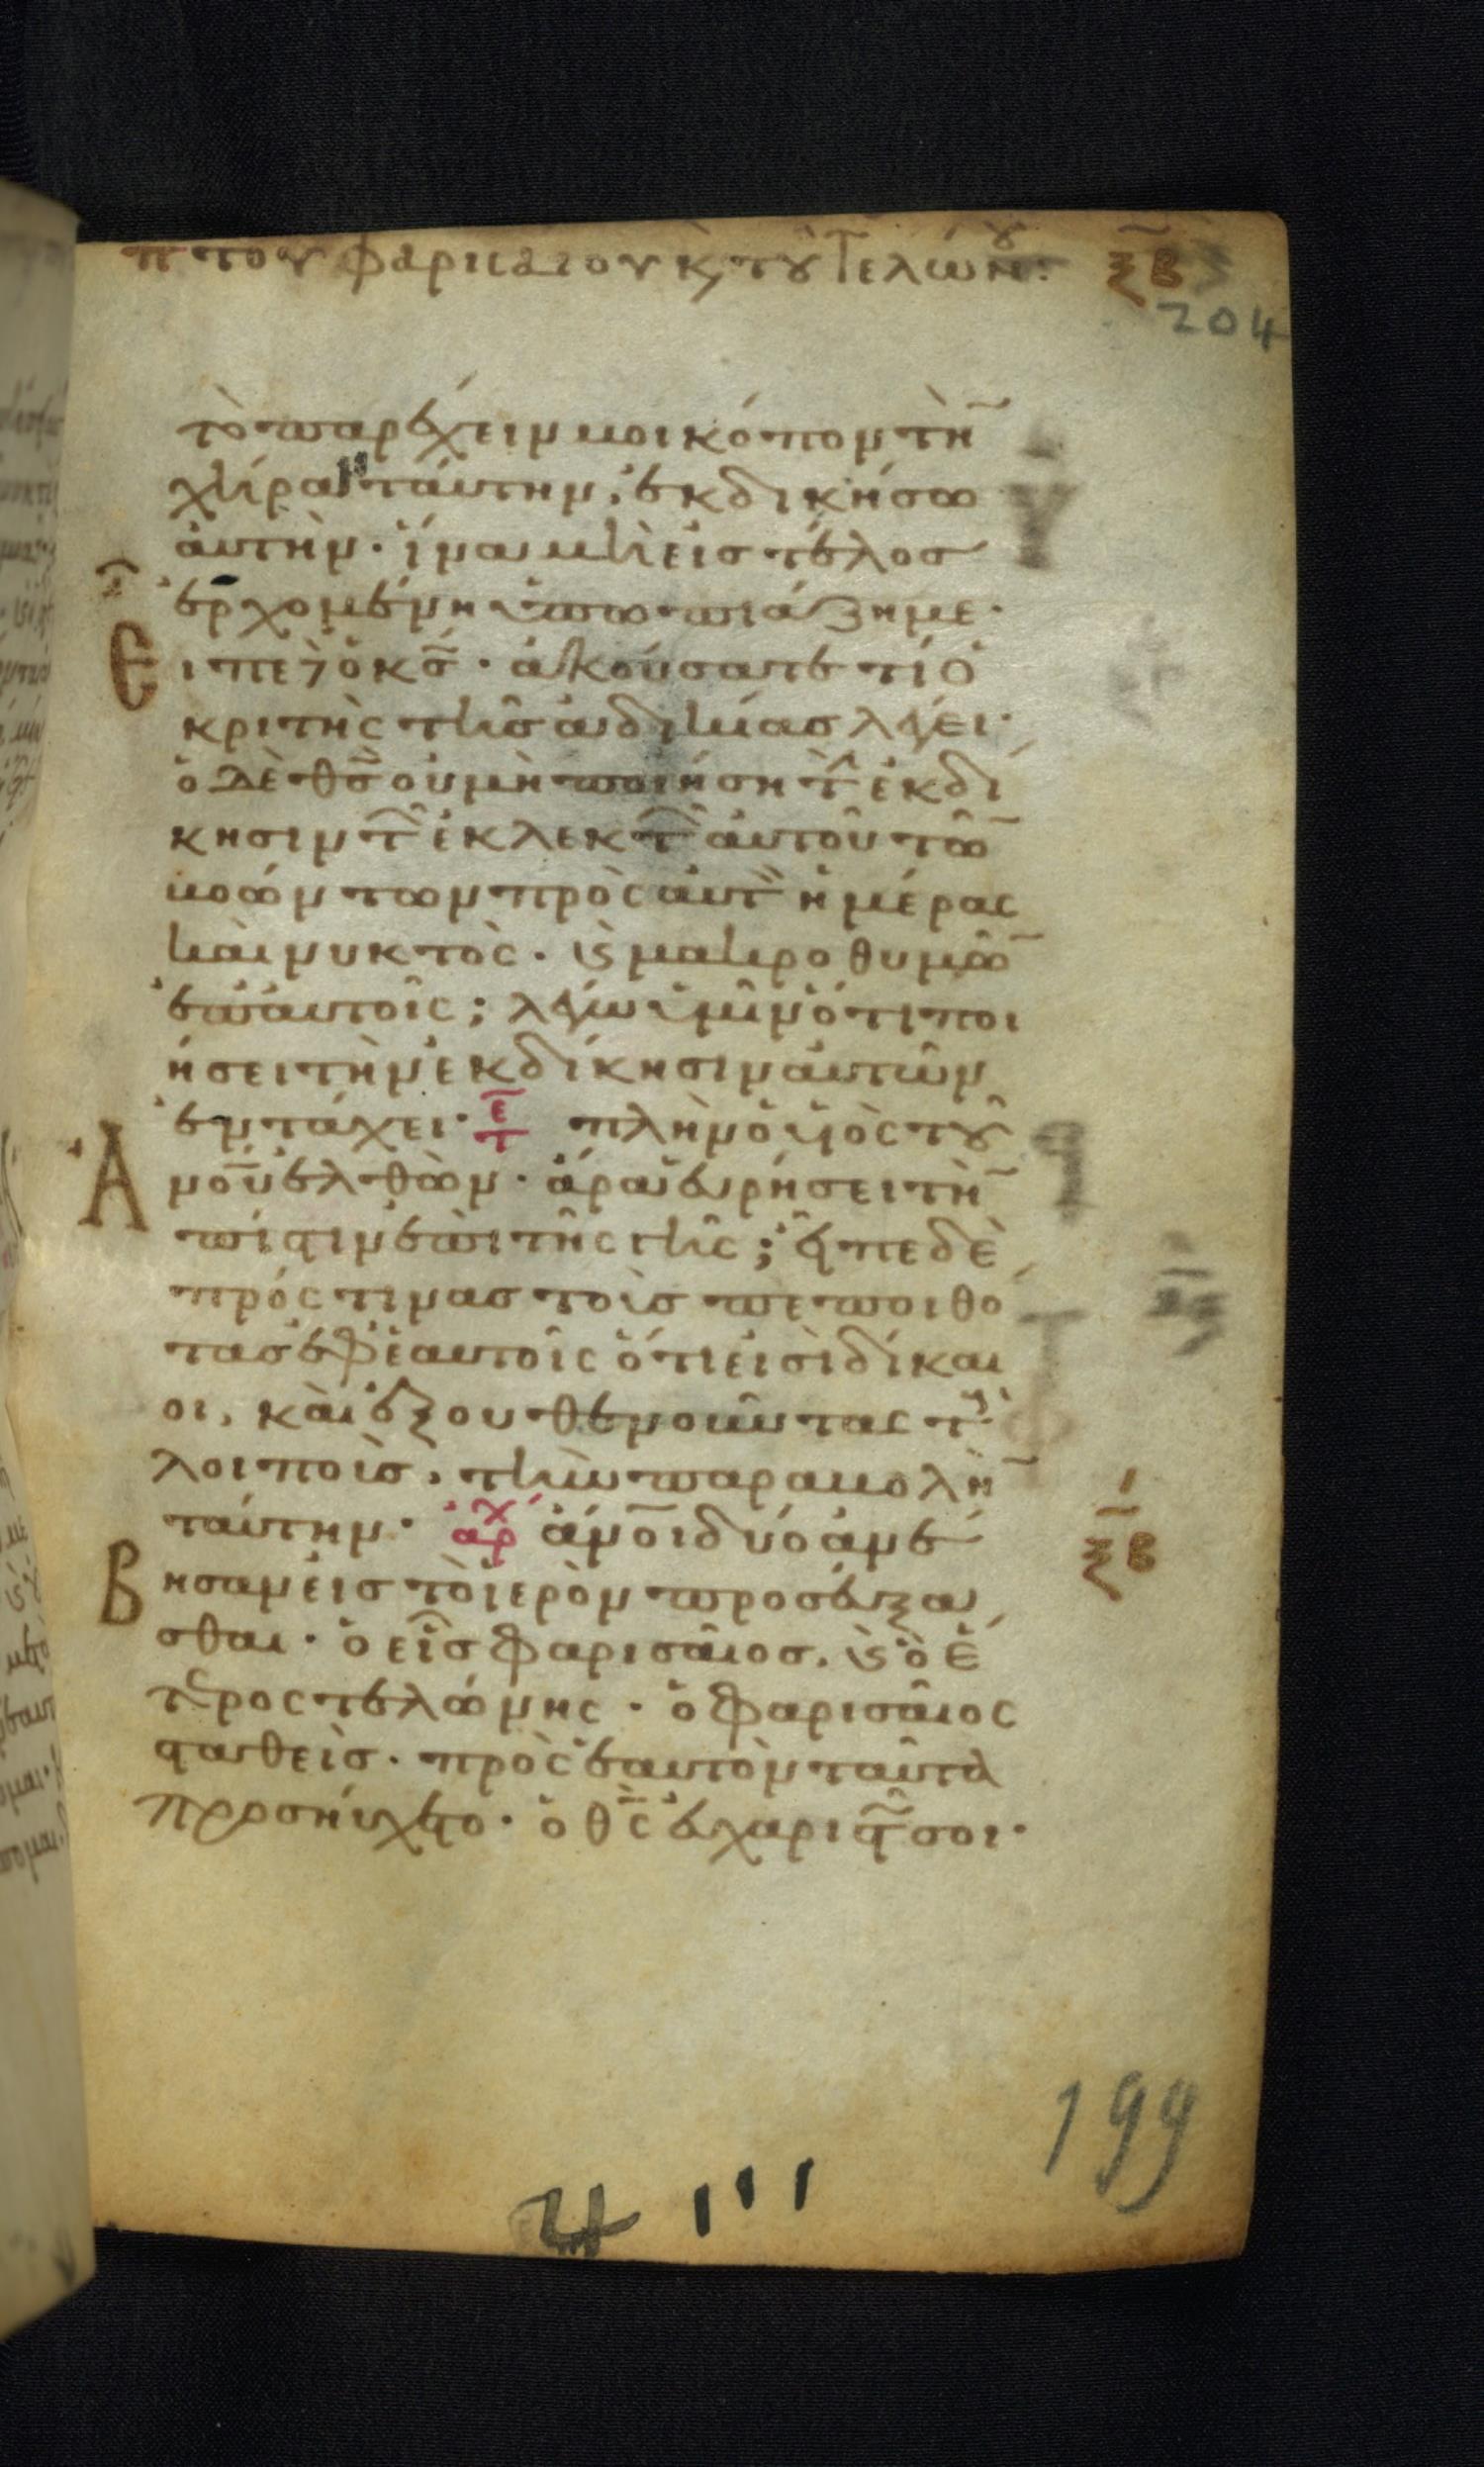 π του φαρισαίου κ, τȣ Τελώνȣ: ξβ
204
τὸ παρέχειν μοι κόπον τὴ̄
χήραν ταύτην, ἐκδικήσω
ἀυτὴν · ἵνα μὴ εἰς τέλος
ἐρχομένη ὑπωπιάζη με ·
Ειπε δὲ ὁ κς̄ · ἀκούσατε τί ὁ
κριτὴς τῆς ἀδικίας λέγει ·
ὁ δὲ θς̄ οὐ μὴ ποιήση τ̂ ἐκδί
κησιν τ̂ ἐκλεκτ̂ ἀυτοῦ τῶ̄
βοώντων πρὸς ἀυτ̏ ἡμέρας
καὶ νυκτὸς · ϗ μακροθυμῶ̄
ἐπ' ἀυτοῖς ; λέγω ὑμῖν ὅτι ποι
ήσει τὴν ἐκδίκησιν ἀυτῶν
ἐν τάχει · ε̄τ πλὴν ὁ υἱὸς τȣ͂
Ἀνοῦ̄ ἐλθὼν · ἆρα ἑυρήσει τὴ̄
πίϛιν ἐπὶ τῆς γῆς ; εἶπε δὲ
πρός τινας τοὺς πεποιθό
τας ἐφ' ἑαυτοῖς ὅτι εἰσὶ δίκαι
οι, καὶ ἐξουθενοῦντας τ̀
λοιποὺς, τὴν παραβολὴ̄
ταύτην · ἀρχ ἄνο̄ι δύο ἀνέ ξβ
Βησαν εἰς τὸ ἱερὸν προσέυξα
σθαι · ὁ εἷς φαρισαῖος, ϗ ὁ ἕ
τερος τελώνης · ὁ φαρισαῖος
ϛαθεὶς · πρὸς ἑαυτὸν ταῦτα
προσήυχετο · ὁ θς̄ ἐυχαριϛῶ σοι ·
199